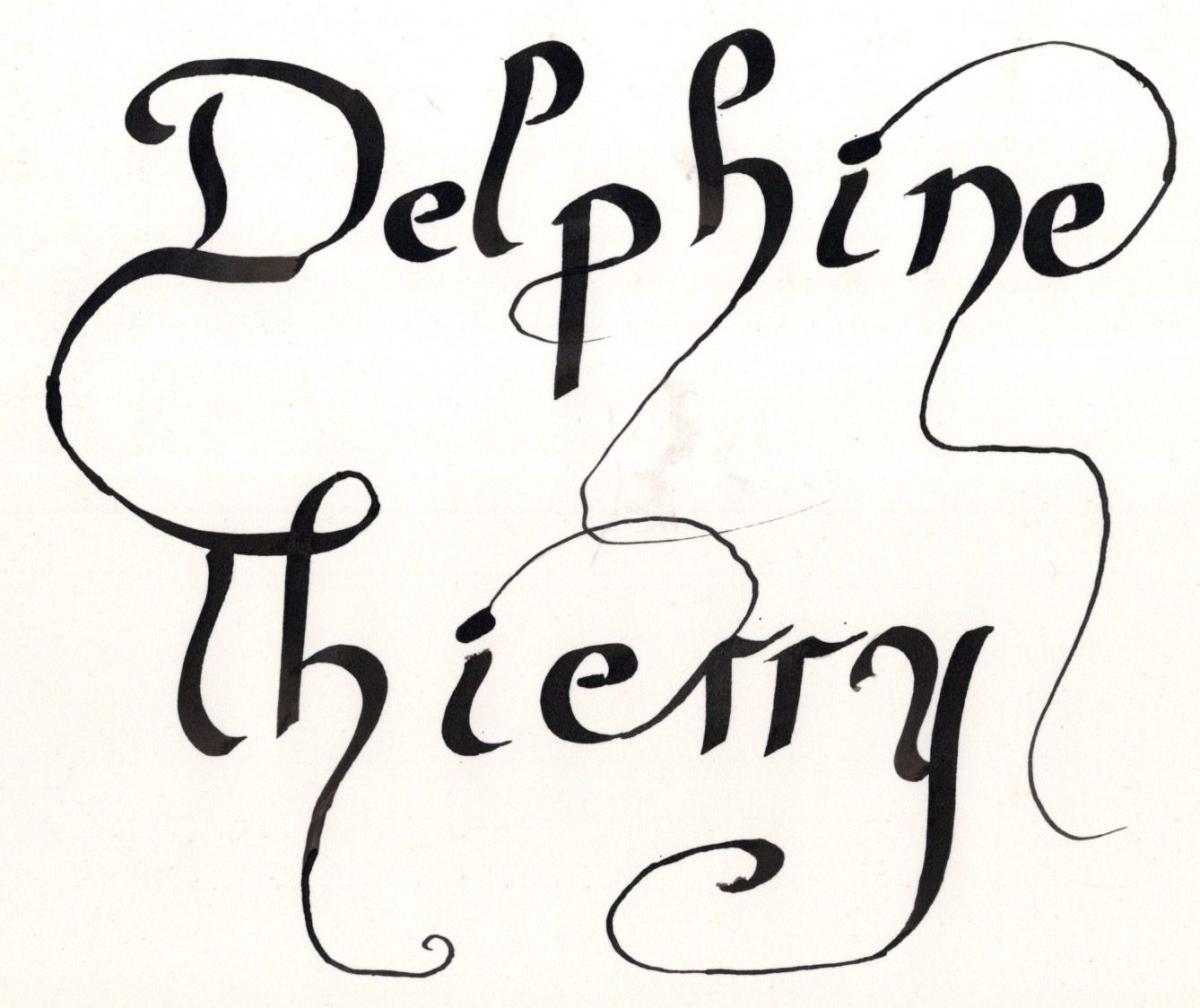 Delphine
Thierry